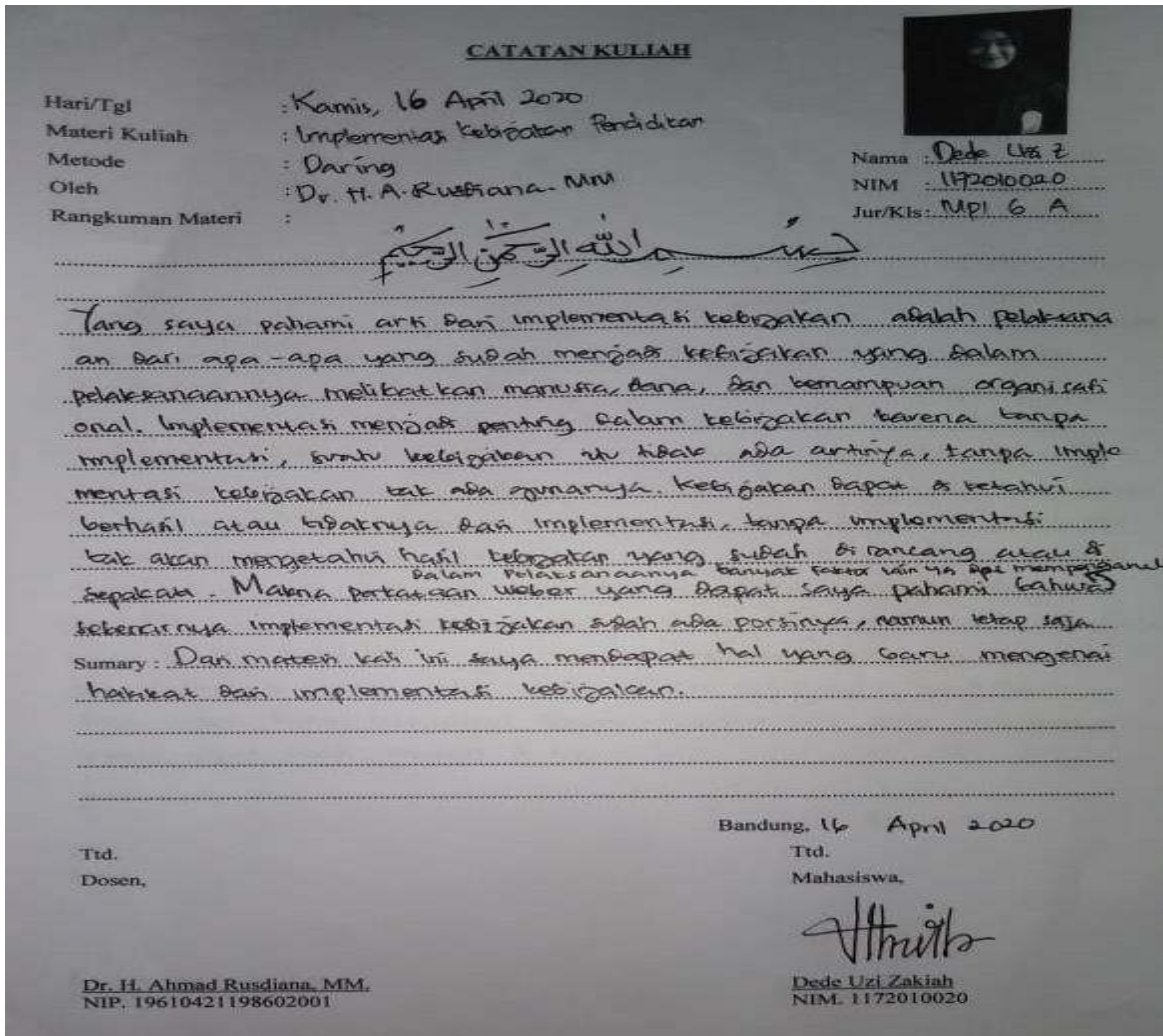 CATATAN KULIAH
Hari/Tgl : Kamis, 16 April 2020
Materi Kuliah : Implementasi Kebijakan Pendidikan
Metode : Daring
Oleh : Dr. H. A. Rusdiana. MM
Rangkuman Materi :
Nama : Dede Uzi Z
NIM : 1172010020
Jur/Kls : MPI 6 A
بسم الله الرحمن الرحيم
Yang saya pahami arti dari implementasi kebijakan adalah pelaksana
an dari apa-apa yang sudah menjadi kebijakan yang dalam
pelaksanaannya melibatkan manusia, dana, dan kemampuan organisasi
onal. Implementasi menjadi penting dalam kebijakan karena tanpa
implementasi, suatu kebijakan itu tidak ada artinya, tanpa imple
mentasi kebijakan tak ada gunanya. Kebijakan dapat di ketahui
berhasil atau tidaknya dari implementasi, tanpa implementasi
tak akan mengetahui hasil kebijakan yang sudah di rancang atau di
sepakati. Makna perkataan Weber yang dapat saya pahami bahwa
dalam pelaksanaanya banyak faktor lain yg
sebenarnya implementasi kebijakan sudah ada porsinya, namun tetap saja
Sumary : Dari materi kali ini saya mendapat hal yang baru mengenai
hakikat dari implementasi kebijakan.
Bandung, 16 April 2020
Ttd.
Dosen,
Dr. H. Ahmad Rusdiana, MM.
NIP. 19610421198602001
Ttd.
Mahasiswa,
Dede Uzi Zakiah
NIM. 1172010020